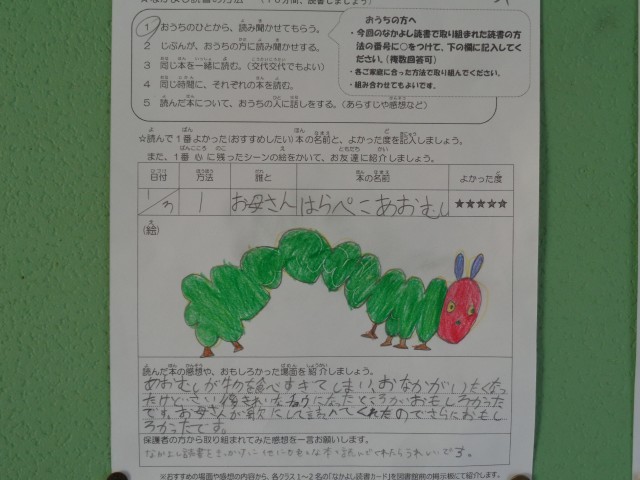 1 おうちのひとから、読み聞かせてもらう。
2 じぶんが、おうちの方に読み聞かせする。
3 同じ本を一緒に読む。（交代交代でもよい）
4 同じ時間に、それぞれの本を読む。
5 読んだ本について、おうちの人に話しをする。（あらすじや感想など）
おうちの方へ
・今回のなかよし読書で取り組まれた読書の方
法の番号に○をつけて、下の欄に記入してく
ださい。（複数回答可）
・各ご家庭に合った方法で取り組んでください。
・組み合わせてもよいです。
☆読んで１番よかった（おすすめしたい）本の名前と、よかった度を記入しましょう。
また、１番心に残ったシーンの絵をかいて、お友達に紹介しましょう。
日付 方法 誰と 本の名前 よかった度
1 お母さん はらぺこあおむし ★★★★★
（絵）
読んだ本の感想や、おもしろかった場面を紹介しましょう。
あおむしが物を食べすぎてしまい、おなかがいたくなっ
たけど、さい後きれいなちょうになったところがおもしろかった
です。お母さんが歌にして読んでくれたのでさらにおもし
ろかったです。
保護者の方から取り組まれてみた感想を一言お願いします。
なかよし読書をきっかけに、他にも色々な本を読んでくれたらうれしいです。
※おすすめの場面や感想の内容から、各クラス１～２名の「なかよし読書カード」を図書館前の掲示板にて紹介します。